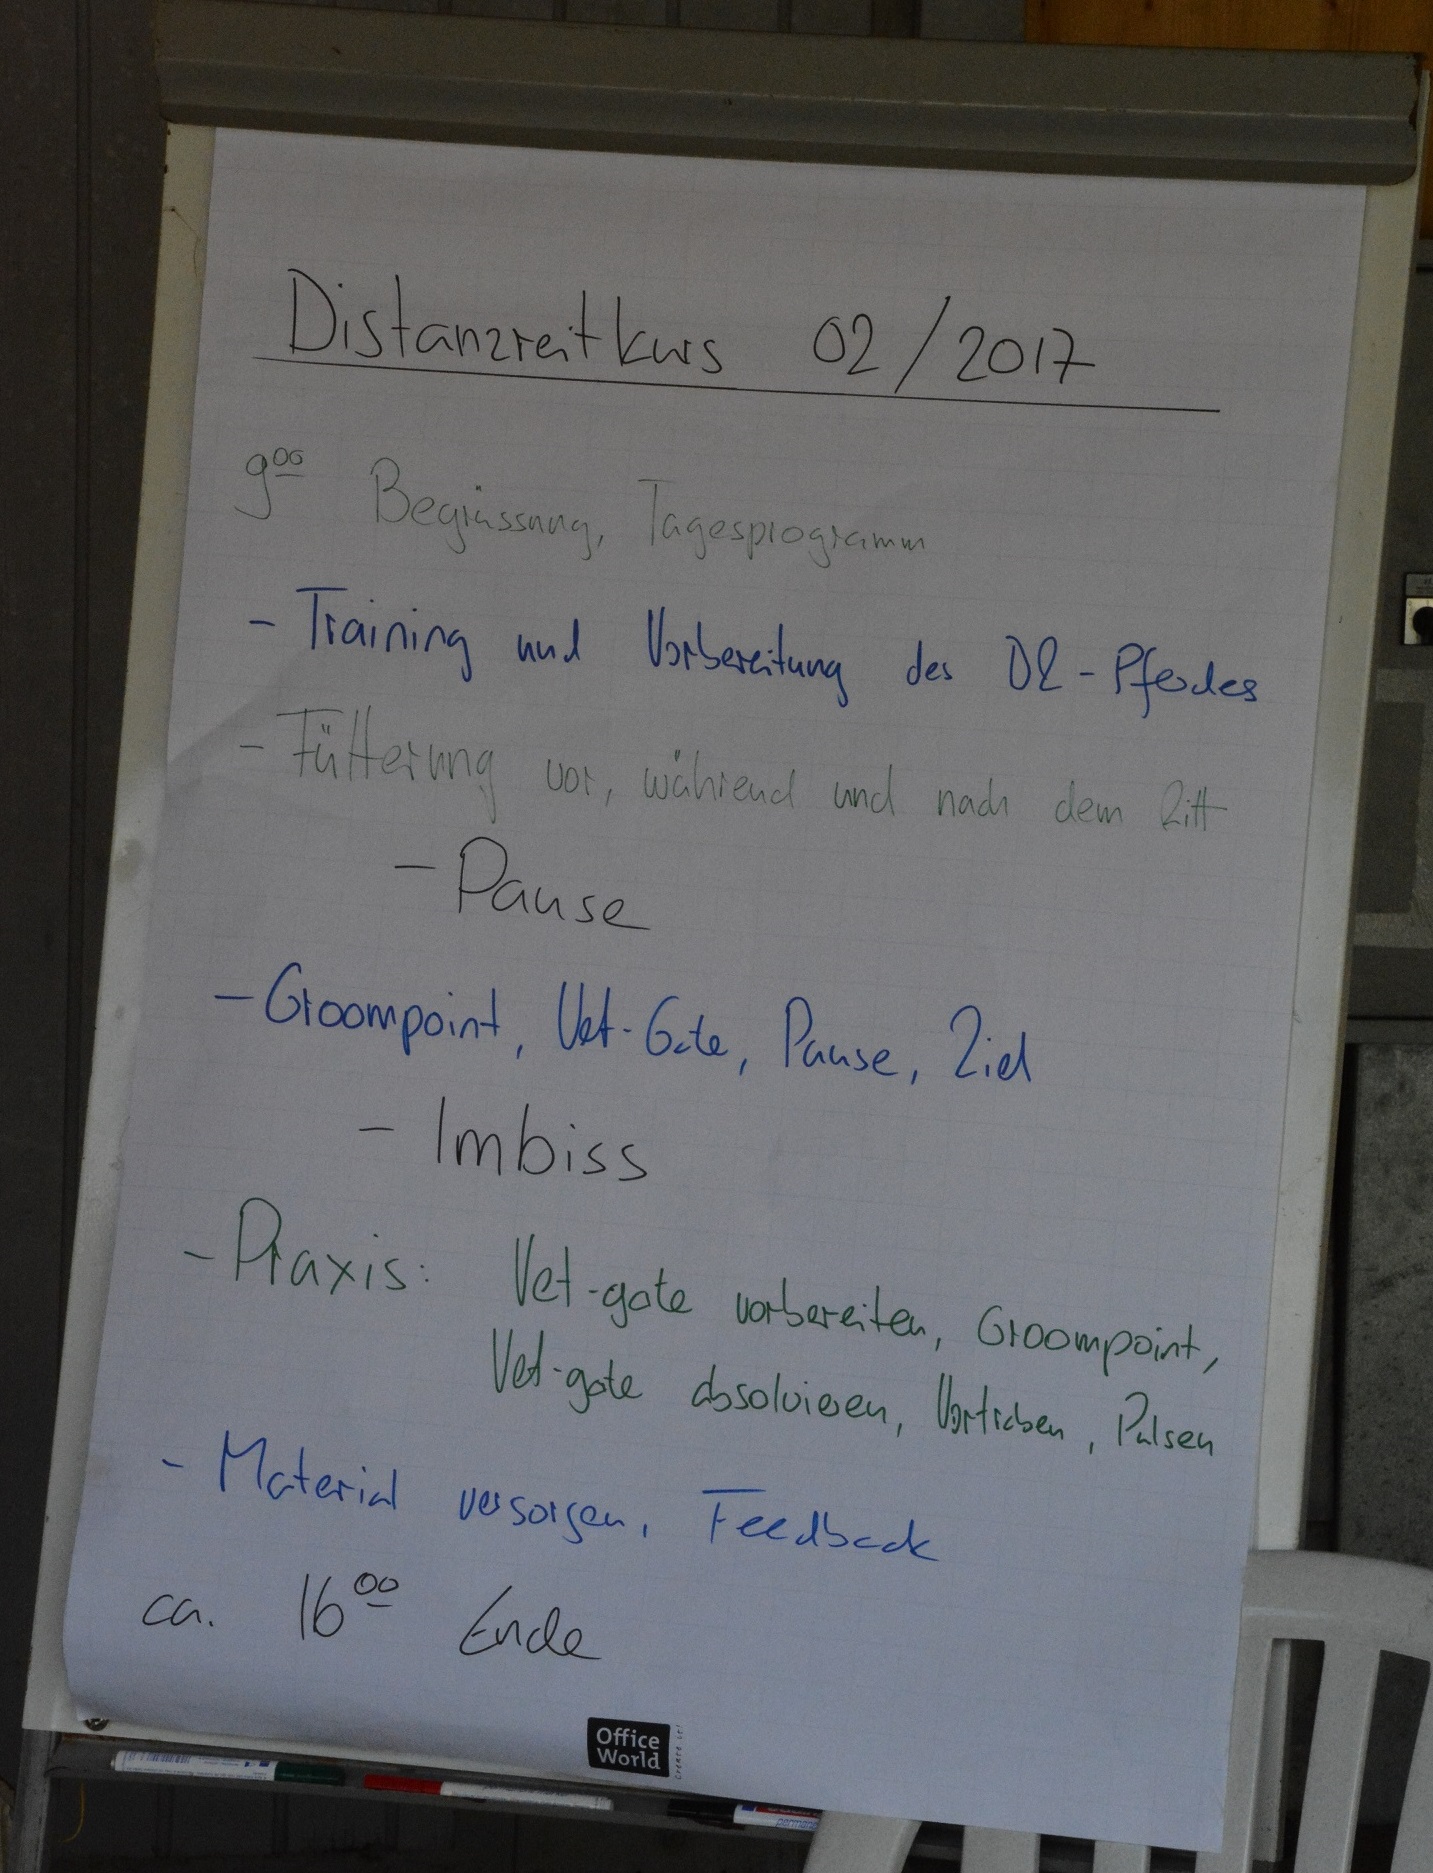 Distanzreitkurs 02/2017
9⁰⁰ Begrüssung, Tagesprogramm
- Training und Vorbereitung des DR-Pferdes
- Fütterung vor, während und nach dem Ritt
- Pause
- Groompoint, Vet-Gate, Pause, Ziel
- Imbiss
- Praxis: Vet-gate vorbereiten, Groompoint,
Vet-gate absolvieren, Vortraben, Pulsen
- Material versorgen, Feedback
ca. 16⁰⁰ Ende
Office
World
Create it!